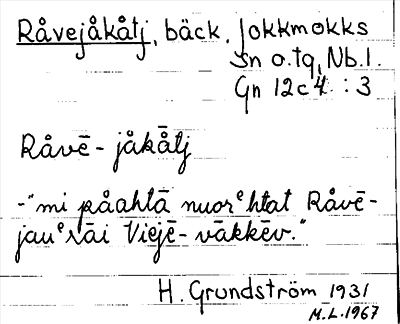 Råvejåkåtj, bäck. Jokkmokks
sn o. tg, Nb. l.
Gn 12c4 : 3
Råvē - jåkåtj
-"mi påahtā nuorᵉhtat Råvē-
jauᵉrāi Viejē- vākkēv."
H. Grundström 1931
M.L. 1967